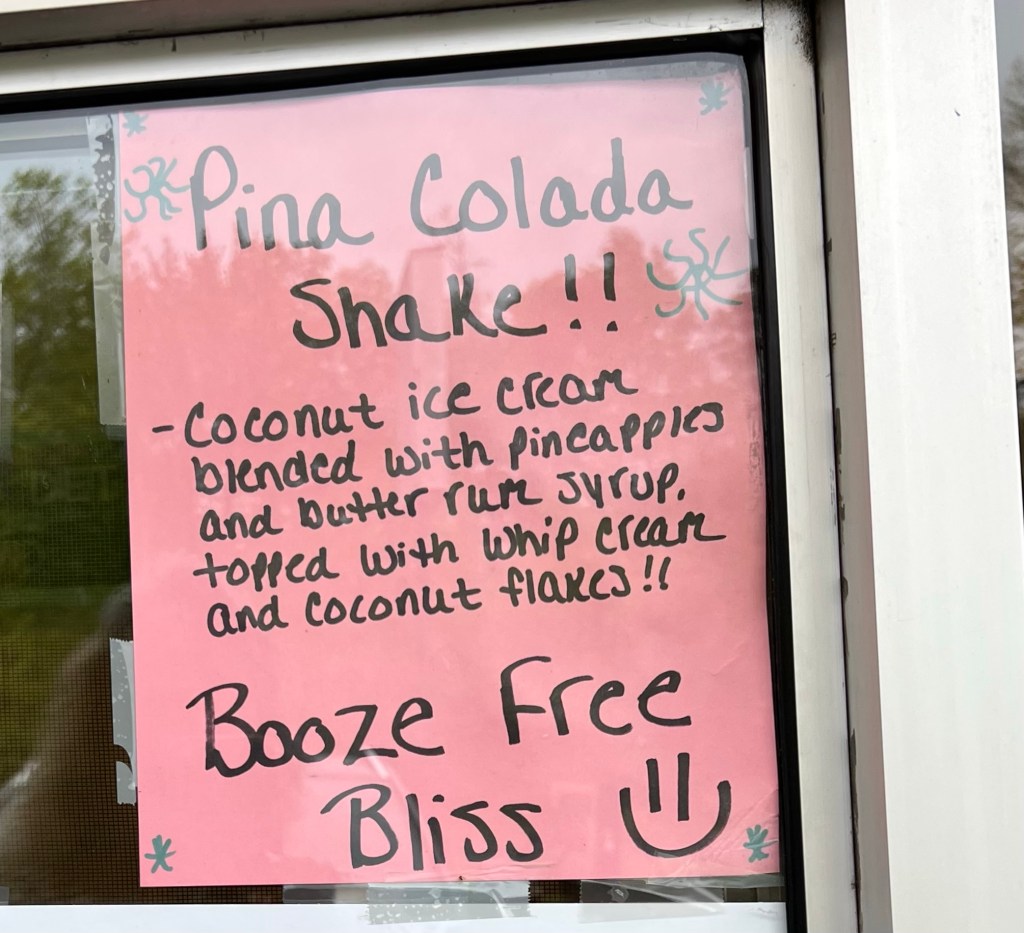 Pina Colada
Shake!!
-Coconut ice cream
blended with pineapples
and butter rum syrup.
topped with whip cream
and coconut flakes!!
Booze Free
Bliss